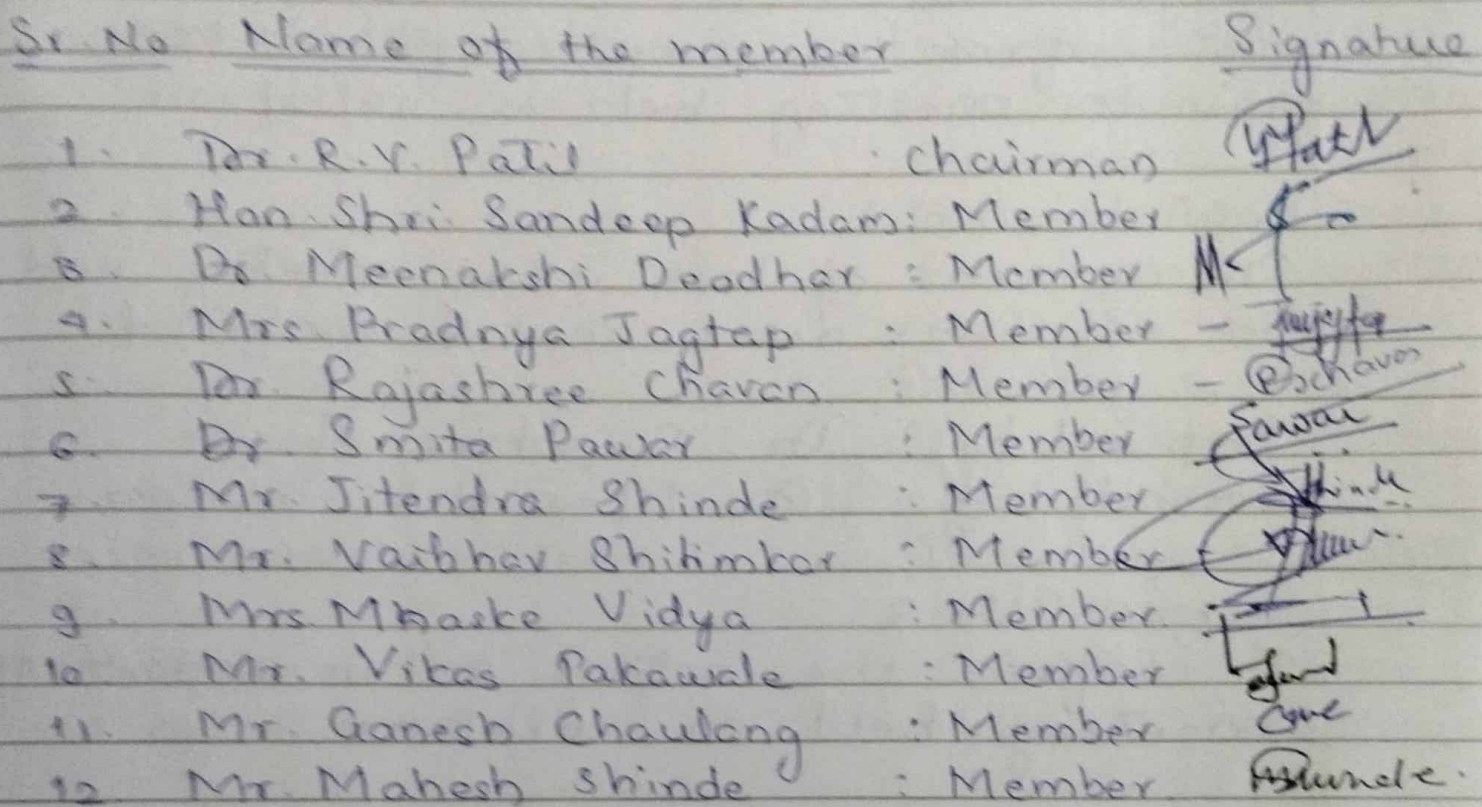 Sr No Name of the member Signature
1. Dr. R.V. Patil : Chairman
2. Hon. Shri. Sandeep Kadam : Member
3. Dr. Meenakshi Deodhar : Member
4. Mrs. Pradnya Jagtap : Member -
5. Dr. Rajashree Chavan : Member - Rschavan
6. Dr. Smita Pawar : Member Pawar
7. Mr. Jitendra Shinde : Member Shinde
8. Mr. Vaibhav Shilimkar : Member
9. Mrs. Mhaske Vidya : Member
10 Mr. Vikas Pakawale : Member
11. Mr. Ganesh Chaulang : Member
12 Mr. Mahesh Shinde : Member